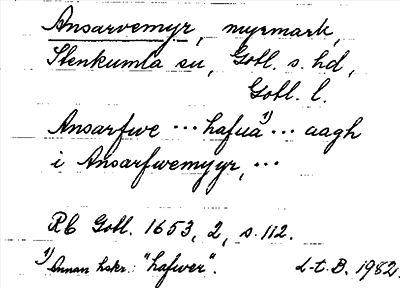 Ansarvemyr, myrmark,
Stenkumla sn, Gotl. s. hd,
Gotl. l.
Ansarfwe ... hafua 1) ... aagh
i Ansarfwemyyr, ...
Rb Gotl. 1653, 2, s. 112.
1) Annan hskr.: "hafwer". L-t. B. 1982.